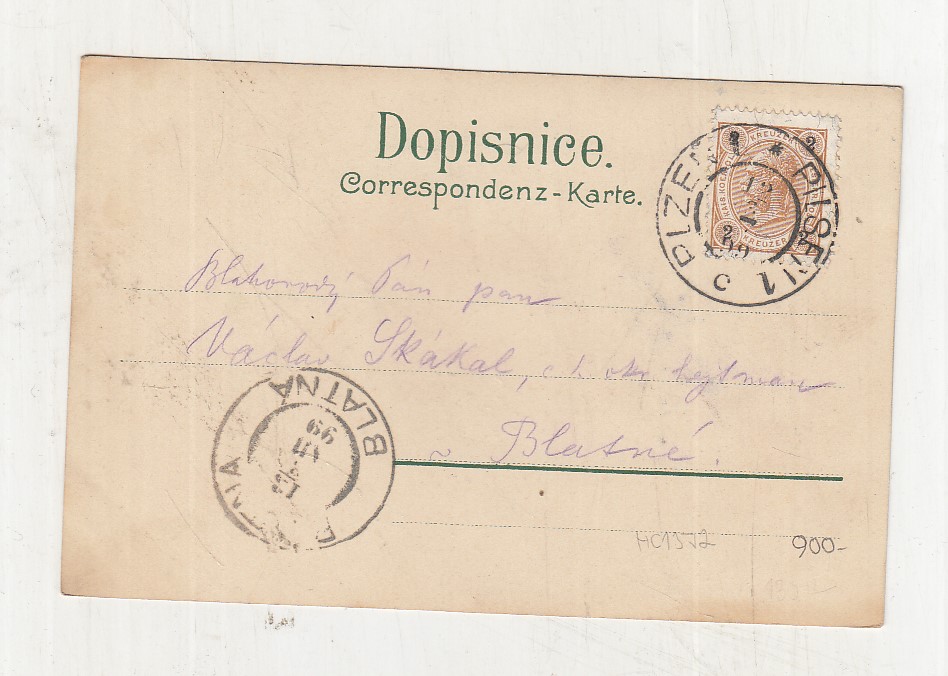 Dopisnice.
Correspondenz-Karte.
PLZEŇ 1 * PILSEN 1
2 KREUZER 2
2 KREUZER 2
Blahorodý Pán pan
Václav Skákal, c. k. okr. hejtman
v Blatné.
BLATNA BLATNÁ
99
HC1572
900-